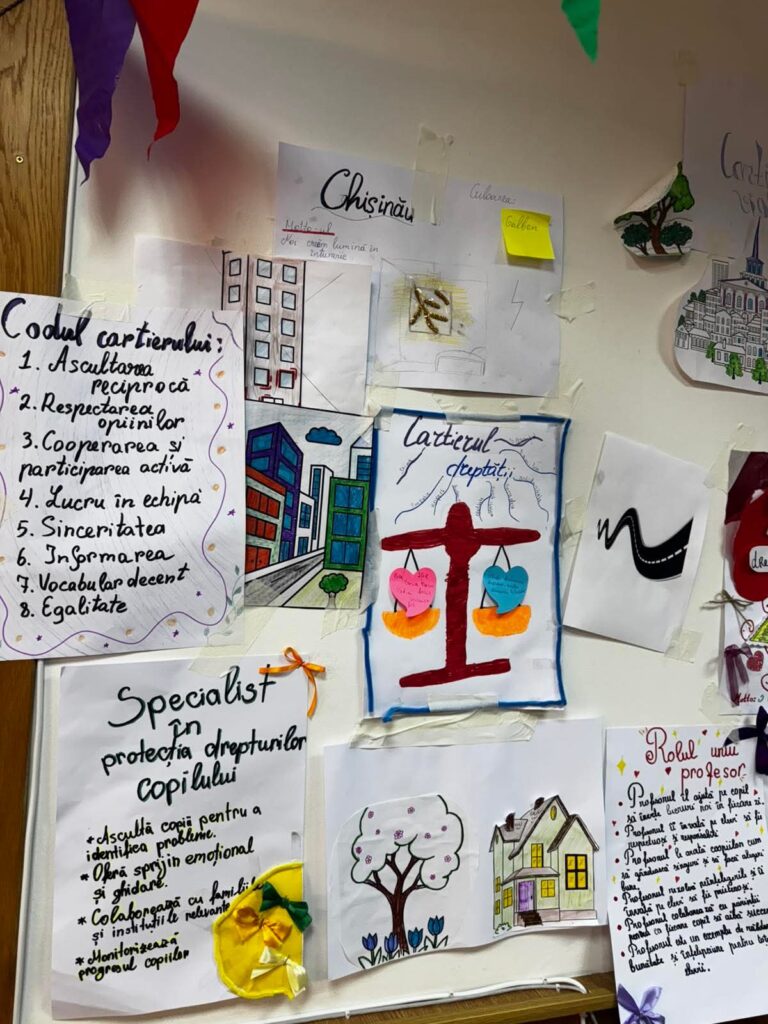 Chișinău
Culoarea:
Galben
Motto-ul
Noi creăm lumină în
întuneric
Codul cartierului:
1. Ascultarea
reciprocă
2. Respectarea
opiniilor
3. Cooperarea si
participarea activă
4. Lucru în echipă
5. Sinceritatea
6. Informarea
7. Vocabular decent
8. Egalitate
Cartierul
dreptății
Specialist
în
protecția drepturilor
copilului
* Ascultă copiii pentru a
identifica probleme.
* Oferă sprijin emoțional
și ghidare.
* Colaborează cu familii
și instituțiile relevan
* Monitorizează
progresul copiilor
Rolul unui
profesor
• Profesorul îl ajută pe copil
să învețe lucruri noi în fiecare zi.
• Profesorul îi învață pe elevi să fie
respectuoși și responsabili
• Profesorul le arată copiilor cum
să gândească singuri și să facă alegeri
bune.
• Profesorul rezolvă neînțelegerile și îi
învață pe elevi să fie prietenoși.
• Profesorul colaborează cu părinții
pentru ca fiecare copil să aibă succes
• Profesorul este un exemplu de
bunătate și înțelepciune pentru toți
elevii.